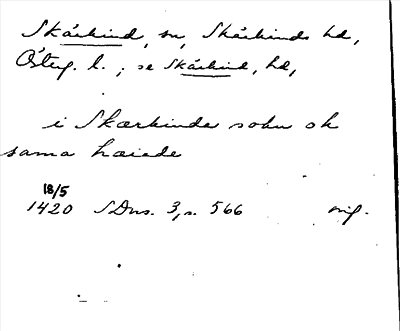 Skärkind, sn, Skärkinds hd,
Österg. l.; se Skärkind, hd,
i Skærkinda sokn ok
sama hæride
18/5
1420 SDns. 3, s. 566 orig.